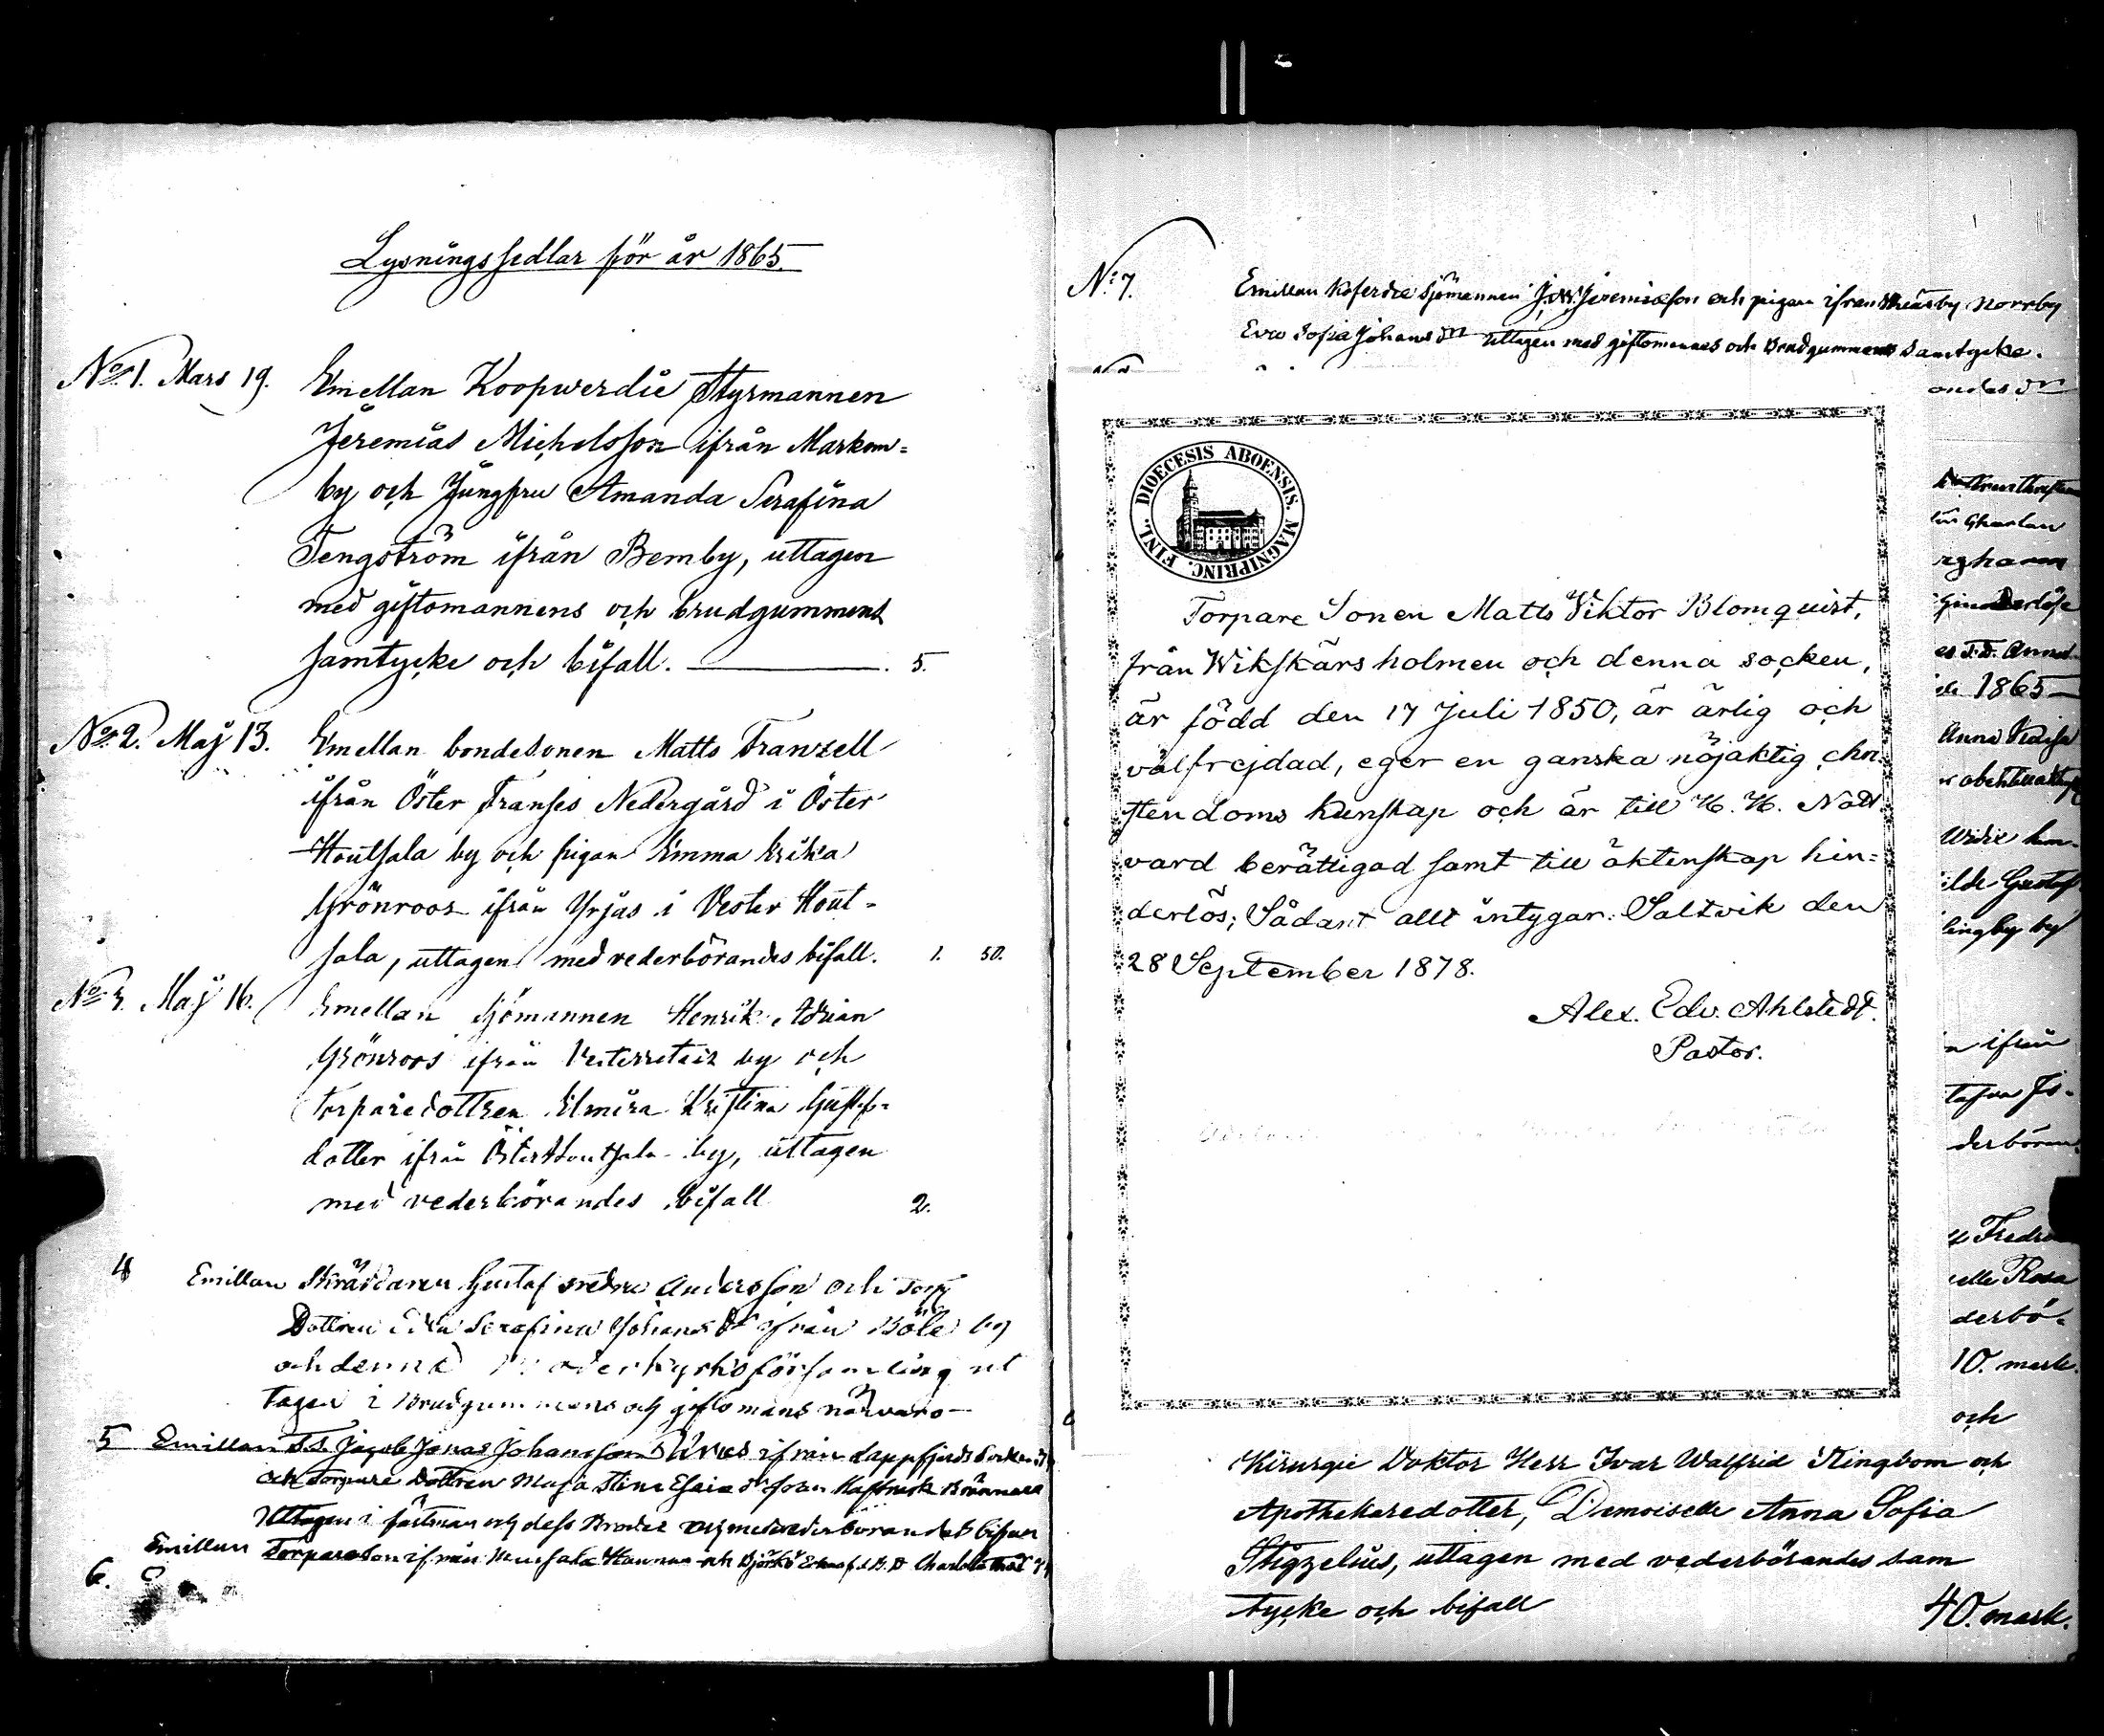 Lysningssedlar för år 1865.
No. 1. Mars 19. Emellan Koopwerdie Styrmannen
Jeremias Michelsson ifrån Markom=
by och Jungfru Amanda Serafina
Tengström ifrån Bemby, uttagen
med giftomannens och brudgummens
samtycke och bifall. 5.
No. 2. Maj 13. Emellan bondesonen Matts Franzell
ifrån Öster Franses Nedergård i Öster
Houtsala by och pigan Emma Erika
Grönroos ifrån Yrjas i Vester Hout-
sala, uttagen med vederbörandes bifall. 1. 50.
No. 3. Maj 16. Emellan Sjömannen Henrik Adrian
Grönroos ifrån by och
torparedottren Elmira Kristina Gustafs-
dotter ifrån Österhoutsala by, uttagen
med vederbörandes bifall 2.
4 Emillan Gustaf Andersson och Torp
Dottren Serafina Johans Dr ifrån Böle by
och denna Moderkyrkoförsamling ut
tagen i Brudgummens och giftomans närvaro
5 Emillan Jacob Jonas Johansson ifrån Lappfjerds Socken
och Torpare Dottren Maja Stina
Uttagen i fästman och dess Broder och med vederbörandes bifall
6. Emillan Torpareson ifrån Mussala och Björkö
No. 7. Emillan Koferdie Sjömannen J. W. Jeremiasson och pigan ifrån Norrby
Eva Sofia Johans Dr uttagen med giftomannes och Brudgummens Samtycke.
andes Dr
DIOECESIS ABOENSIS. MAGNIPRINC. FINL.
Torpare Sonen Matts Viktor Blomquist,
från Wikskärsholmen och denna socken,
är född den 17 Juli 1850, är ärlig och
välfrejdad, eger en ganska nöjaktig chri
stendoms kunskap och är till H. H. Natt
vard berättigad samt till äktenskap hin=
derlös; Sådant allt intygar: Saltvik den
28 September 1878.
Alex. Edv. Ahlstedt.
Pastor.
1865
Anna
Gustaf
lingby by
ifrån
derböran
Rosa
derbö-
10. mark.
och
Kirurgie Doktor Herr Ivar Walfrid Ringbom och
Apothekaredotter, Demoiselle Anna Sofia
Stigzelius, uttagen med vederbörandes sam
tycke och bifall 40. mark.